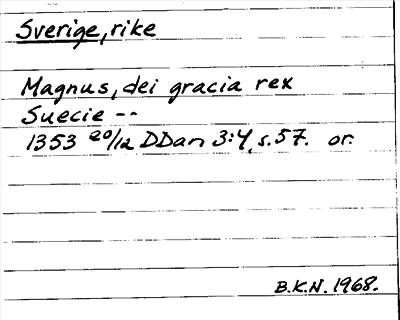 Sverige, rike
Magnus, dei gracia rex
Suecie --
1353 20/12 DDan 3:4, s.57. or.
B.K.N. 1968.